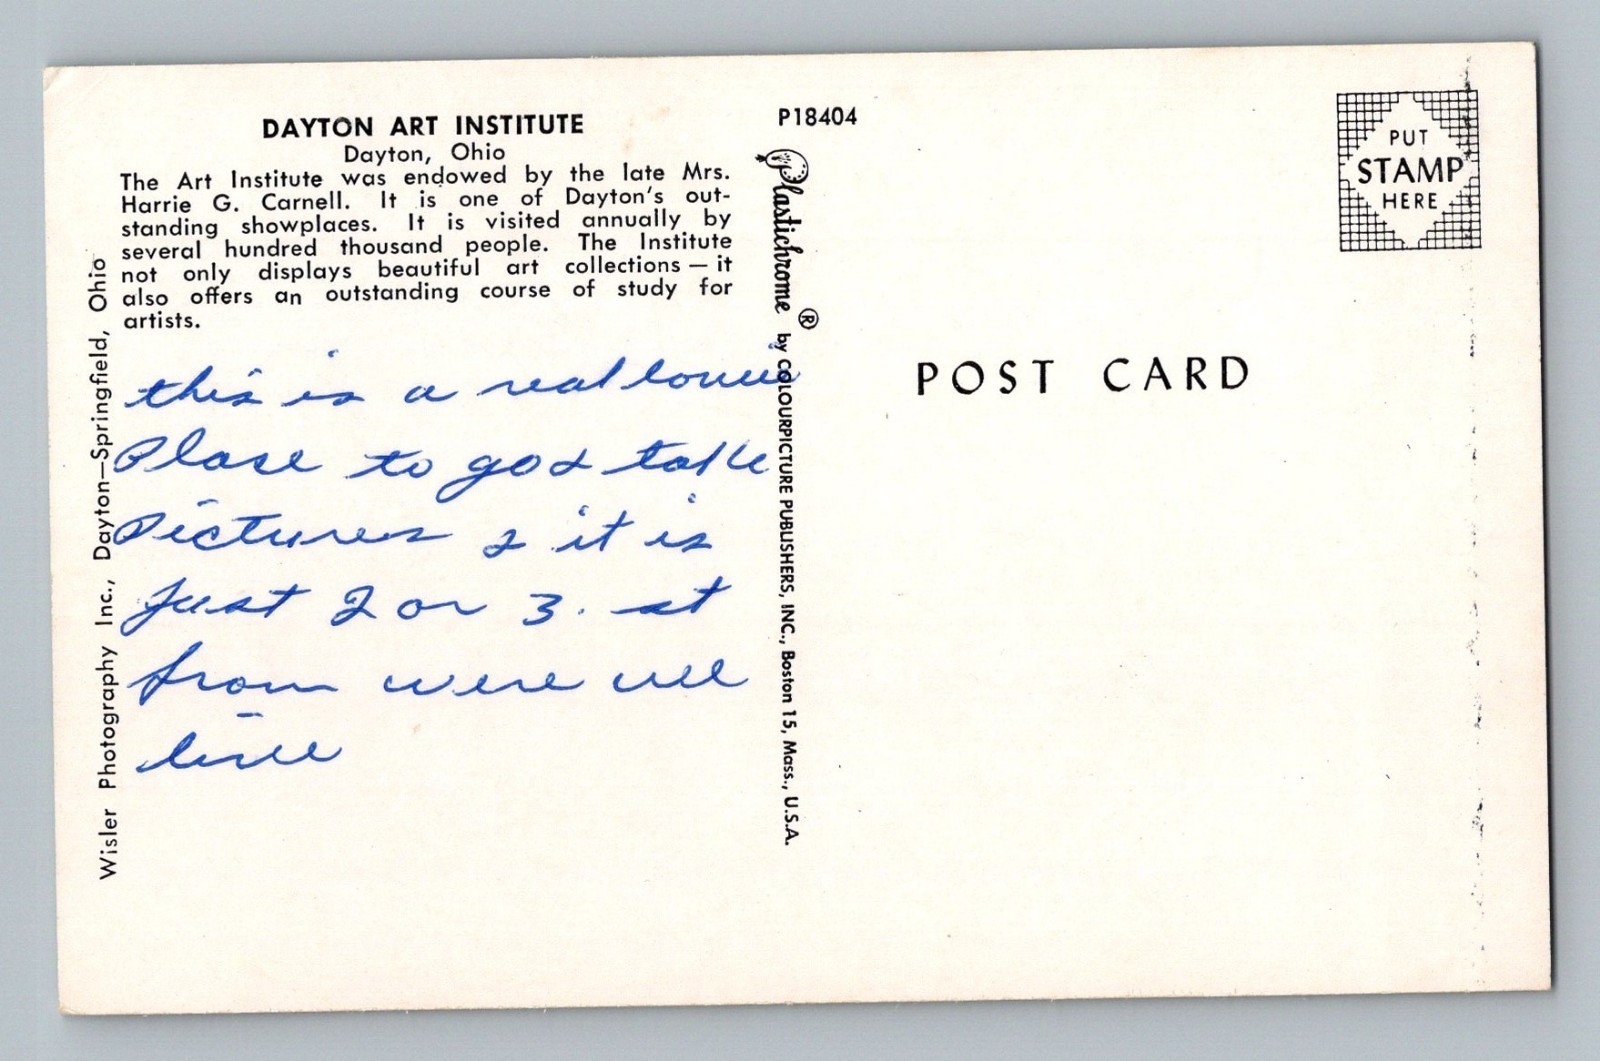 DAYTON ART INSTITUTE
Dayton, Ohio
The Art Institute was endowed by the late Mrs.
Harrie G. Carnell. It is one of Dayton's out-
standing showplaces. It is visited annually by
several hundred thousand people. The Institute
not only displays beautiful art collections — it
also offers an outstanding course of study for
artists.
this is a real
Place to go & take
Pictures & it is
just 2 or 3. st
from were we
live
Wisler Photography Inc., Dayton—Springfield, Ohio
P18404
Plastichrome ® by COLOURPICTURE PUBLISHERS, INC., Boston 15, Mass., U.S.A.
PUT
STAMP
HERE
POST CARD